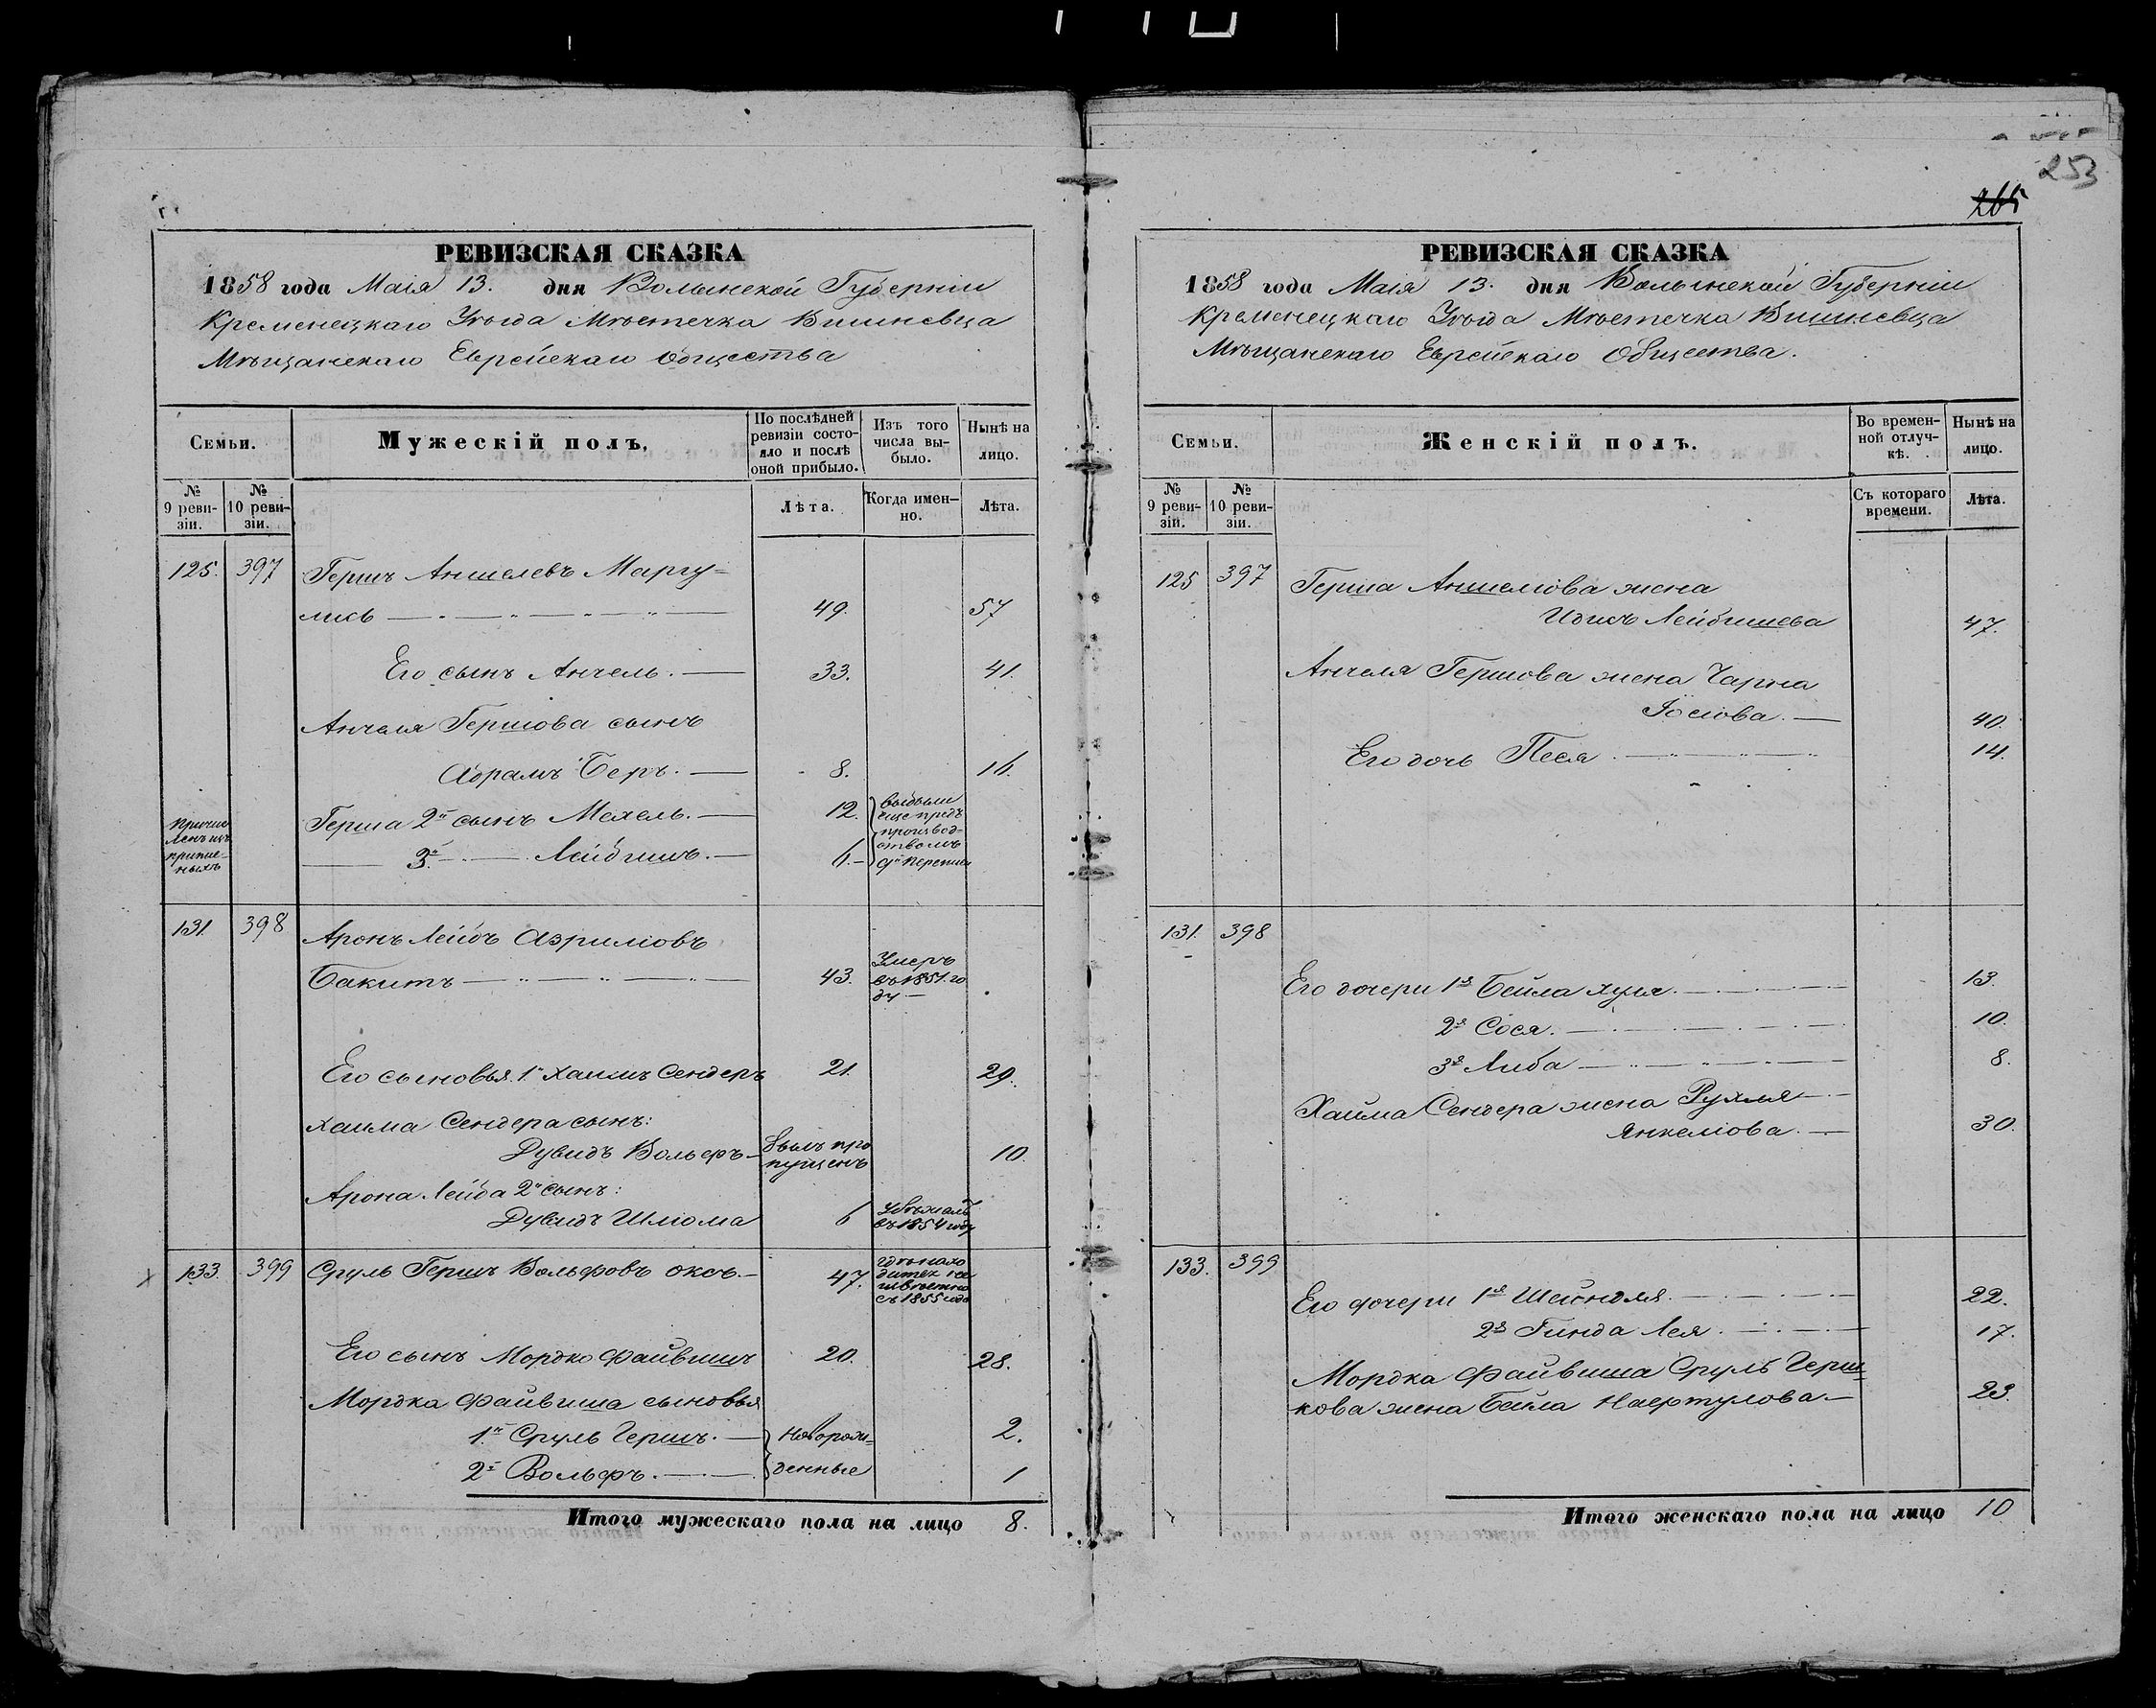 253
265
РЕВИЗСКАЯ СКАЗКА
1858 года Маія 13. дня Волынской Губерніи
Кременецкаго Уѣзда Мѣстечка Вишневца
Мѣщанскаго Еврейскаго общества
Семьи.
Мужескій полъ.
По послѣдней ревизіи состояло и послѣ оной прибыло.
Изъ того числа выбыло.
Нынѣ на лицо.
№ 9 ревизіи.
№ 10 ревизіи.
Лѣта.
Когда именно.
Лѣта.
125. 397 Гершъ Аншелевъ Маргу-
лисъ 49. 57
Его сынъ Анчель. 33. 41.
Анчеля Гершова сынъ
Абрамъ Беръ. 8. 16.
Герша 2й сынъ Мехель. 12. выбыли
еще предъ
производ-
ствомъ
3й Лейбишъ. 6.
131. 398 Аронъ Лейбъ Азриліовъ
Бакитъ 43. Умеръ
въ 1851 го
ду
Его сыновья 1й Хаимъ Сендеръ 21. 29.
Хаима Сендера сынъ:
Дувидъ Вольфъ былъ про
пущенъ 10.
Арона Лейба 2й сынъ:
Дувидъ Шліома 6
въ 1854 году
133. 399 Сруль Гершъ Вольфовъ Оксъ. 47.
съ 1855 года
Его сынъ Мордко Файвишъ 20. 28.
Мордка Файвиша сыновья
1й Сруль Гершъ. новорож- 2.
2й Вольфъ. денные 1
Итого мужескаго пола на лицо 8.
РЕВИЗСКАЯ СКАЗКА
1858 года Маія 13. дня Волынской Губерніи
Кременецкаго Уѣзда Мѣстечка Вишневца
Мѣщанскаго Еврейскаго Общества.
Семьи.
Женскій полъ.
Во временной отлучкѣ.
Нынѣ на лицо.
№ 9 ревизіи.
№ 10 ревизіи.
Съ котораго времени.
Лѣта.
125 397 Герша Аншеліова жена
Идисъ Лейбишева 47.
Анчеля Гершова жена Чарна
Іосіова. 40.
Его дочь Песя 14.
131. 398
Его дочери 1я Бейла Хуля 13.
2я Сося. 10.
3я Либа 8.
Хаима Сендера жена Рухля
Янкеліова. 30.
133. 399
Его дочери 1я Шейндля. 22.
2я Гинда Лея. 17.
Мордка Файвиша Сруль Герш-
кова жена Бейла Нафтулова 23.
Итого женскаго пола на лицо 10